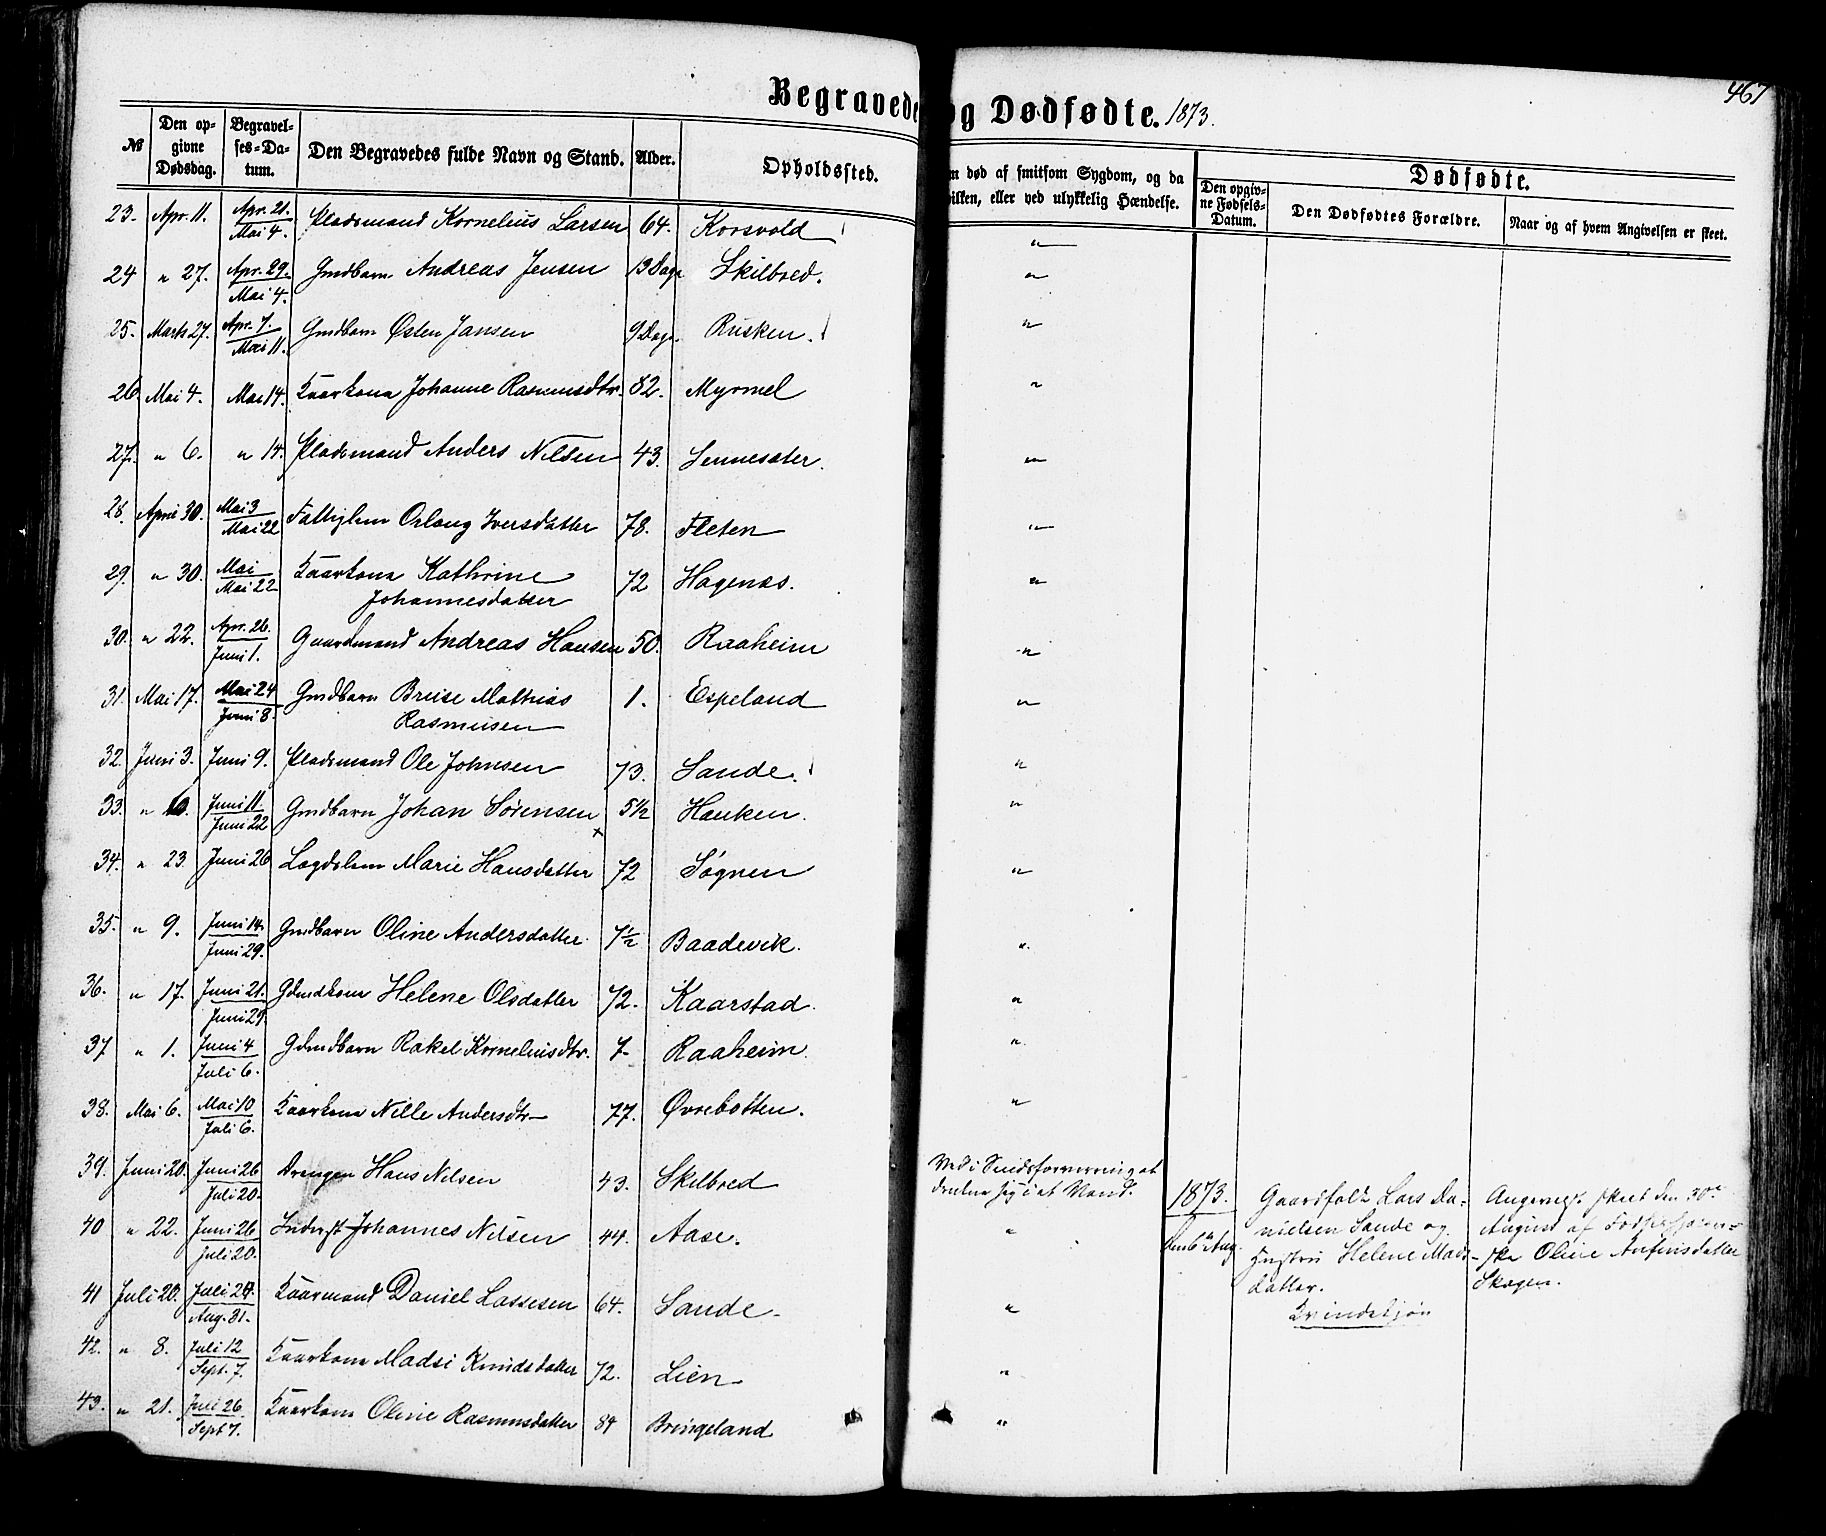 467
Begravede og Dødfødte. 1873.
№ Den opgivne Dødsdag. Begravelses-Datum. Den Begravedes fulde Navn og Stand. Alder. Opholdssted. død af smitsom Sygdom, og da hvilken, eller ved ulykkelig Hændelse. Dødfødte.
Den opgivne Fødsels-Datum. Den Dødfødtes Forældre. Naar og af hvem Angivelsen er skeet.
23. Apr. 11. Apr. 21. Mai 4. Pladsmand Kornelius Larsen 64. Korsvold "
24 " 27. Apr. 29. Mai 4. Gmdbarn Andreas Jensen 13 Dage Skilbred. "
25. Marts 27. Apr. 7. Mai 11. Gmdbarn Østen Jansen 9 Dage. Rusken. "
26 Mai 4. Mai 14. Kaarkona Johanne Rasmusdtr. 82. Myrmel "
27. " 6. " 14. Pladsmand Anders Nilsen 43. Sennesæter. "
28. April 30. Mai 3 Mai 22 Fattiglem Oslaug Iversdatter 78. Fleten "
29. " 30. Mai Mai 22 Kaarkona Kathrine
Johannesdatter 72 Hagenæs. "
30. " 22. Apr. 26. Juni 1. Gaardmand Andreas Hansen 50. Raaheim "
31. Mai 17. Mai 24 Juni 8. Gmdbarn Brise Mathias
Rasmusen 1. Espeland "
32. Juni 3. Juni 9. Pladsmand Ole Johnsen 73. Sande. "
33. " 10. Juni 11 Juni 22 Gmdbarn Johan Sørensen 5½ Hauken. "
34. " 23. Juni 26 Lægdslem Marie Hansdatter 72 Søgnen "
35. " 9. Juni 14. Juni 29. Gmdbarn Oline Andersdatter. 7½ Baadevik. "
36. " 17. Juni 21. Juni 29. Gdmdkona Helene Olsdatter 72. Kaarstad. "
37 " 1. Juni 4 Juli 6. Gdmdbarn Rakel Kornelius dtr. 7- Raaheim. "
38. Mai 6. Mai 10 Juli 6. Kaarkona Nille Andersdtr- 77. Øvrebotten. "
39. Juni 20. Juni 26 Juli 20. Drengen Hans Nilsen 43. Skilbred Ved i Sindsforvirring at
drukne sig i et Vand.
40 " 22. Juni 26 Juli 20. Inderst Johannes Nilsen 44. Aase. "
41 Juli 20. Juli 24. Aug. 31. Kaarmand Daniel Lassesen 64. Sande- "
42. " 8. Juli 12 Sept. 7. Kaarkona Madsi Knudsdatter 72. Lien- "
43. " 21. Juli 26 Sept 7. Kaarkona Oline Rasmusdatter 84 Bringeland "
1873.
den 6te Aug.
Gaardfolk Lars Da-
nielsen Sande og
Hustru Helene Mads-
datter.
Kvindekjøn
Angivet skeet den 30te
August af
Oline Anfinsdatter
Skogen.